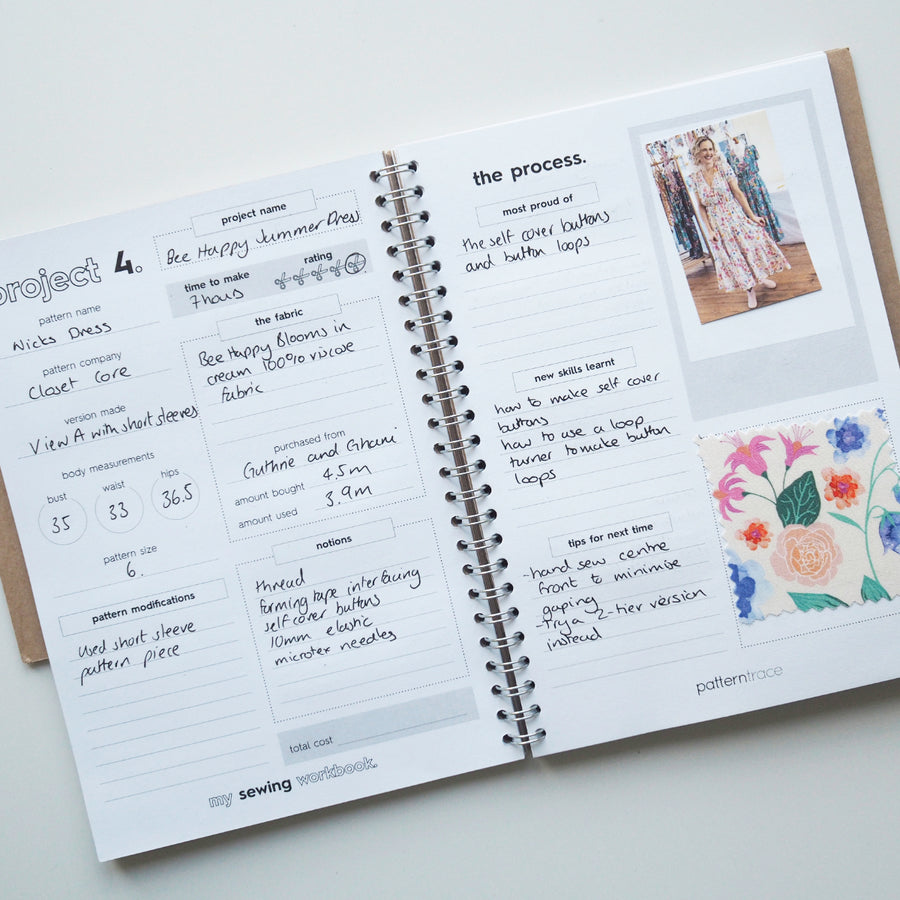 project 4.
project name
Bee Happy Summer Dress
time to make
7 hours
rating
pattern name
Nicks Dress
pattern company
Closet Core
version made
View A with short sleeves
body measurements
bust
waist
hips
35
33
36.5
pattern size
6.
pattern modifications
used short sleeve
pattern piece
the fabric
Bee Happy Blooms in
cream 100% viscose
fabric
purchased from
Guthrie and Ghani
amount bought 4.5m
amount used 3.9m
notions
thread
forming tape interfacing
self cover buttons
10mm elastic
microtex needles
total cost
my sewing workbook.
the process.
most proud of
the self cover buttons
and button loops
new skills learnt
how to make self cover
buttons
how to use a loop
turner to make button
loops
tips for next time
-hand sew centre
front to minimise
gaping
-try a 2-tier version
instead
patterntrace